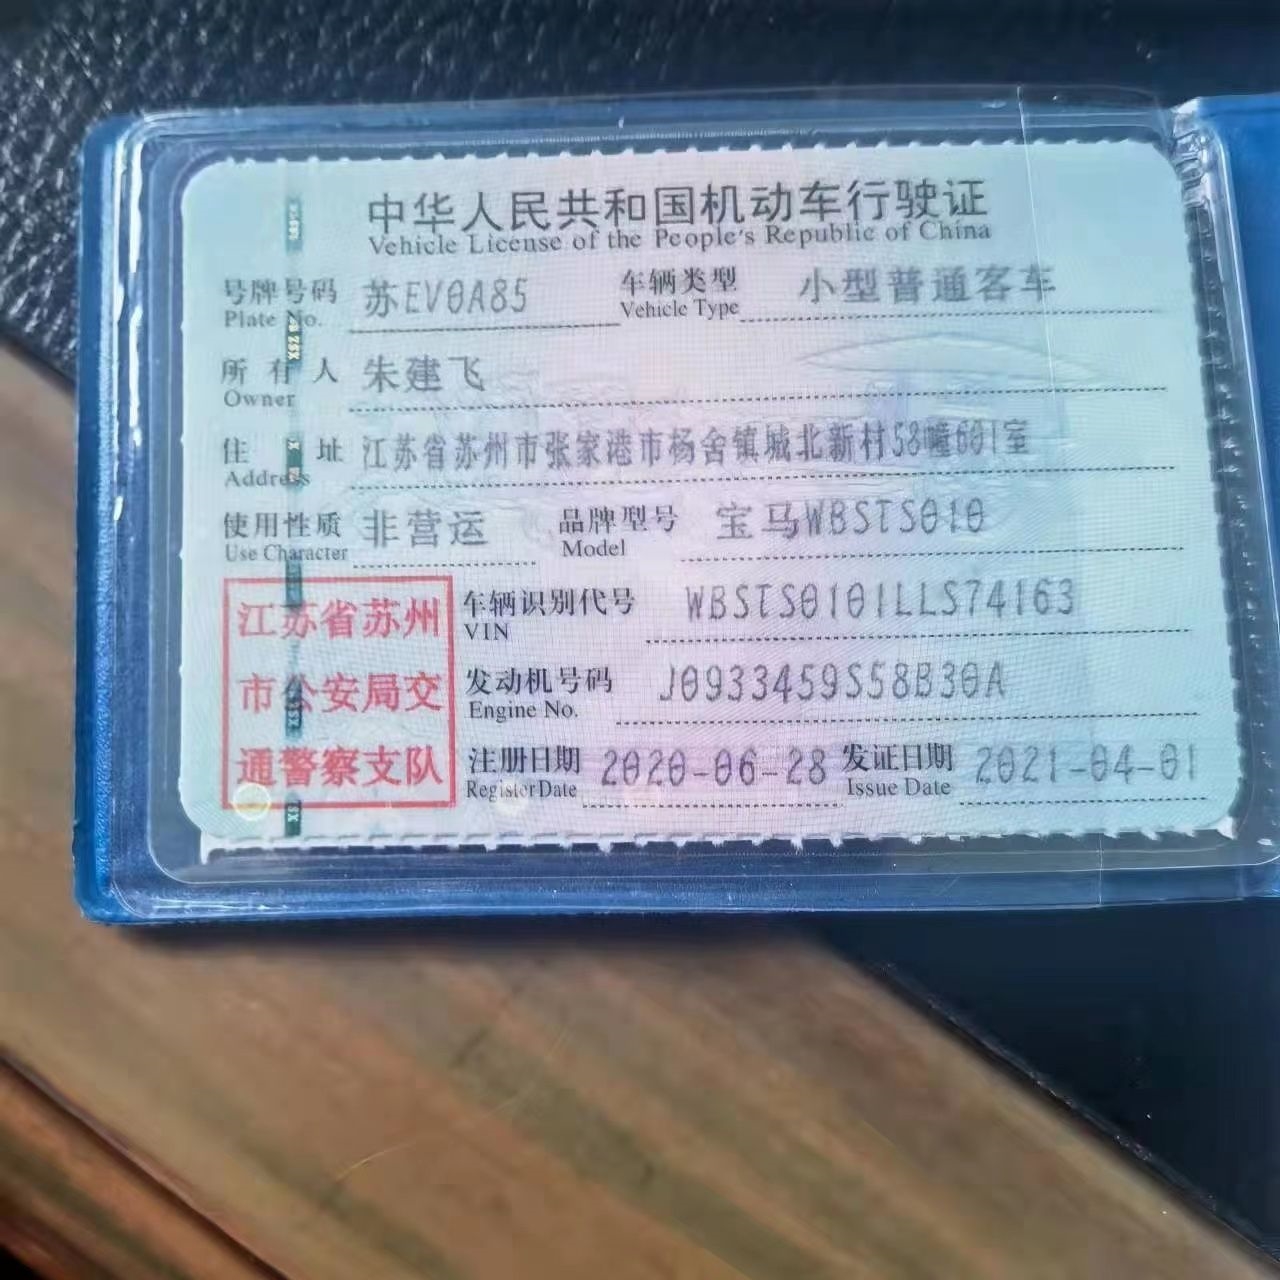 中华人民共和国机动车行驶证
Vehicle License of the People's Republic of China
号牌号码 苏EV0A85 车辆类型 小型普通客车
Plate No. Vehicle Type
所有人 朱建飞
Owner
住址 江苏省苏州市张家港市杨舍镇城北新村58幢601室
Address
使用性质 非营运 品牌型号 宝马WBSTS010
Use Character Model
江苏省苏州
市公安局交
通警察支队
车辆识别代号 WBSTS0101LLS74163
VIN
发动机号码 J0933459S58B30A
Engine No.
注册日期 2020-06-28 发证日期 2021-04-01
Register Date Issue Date